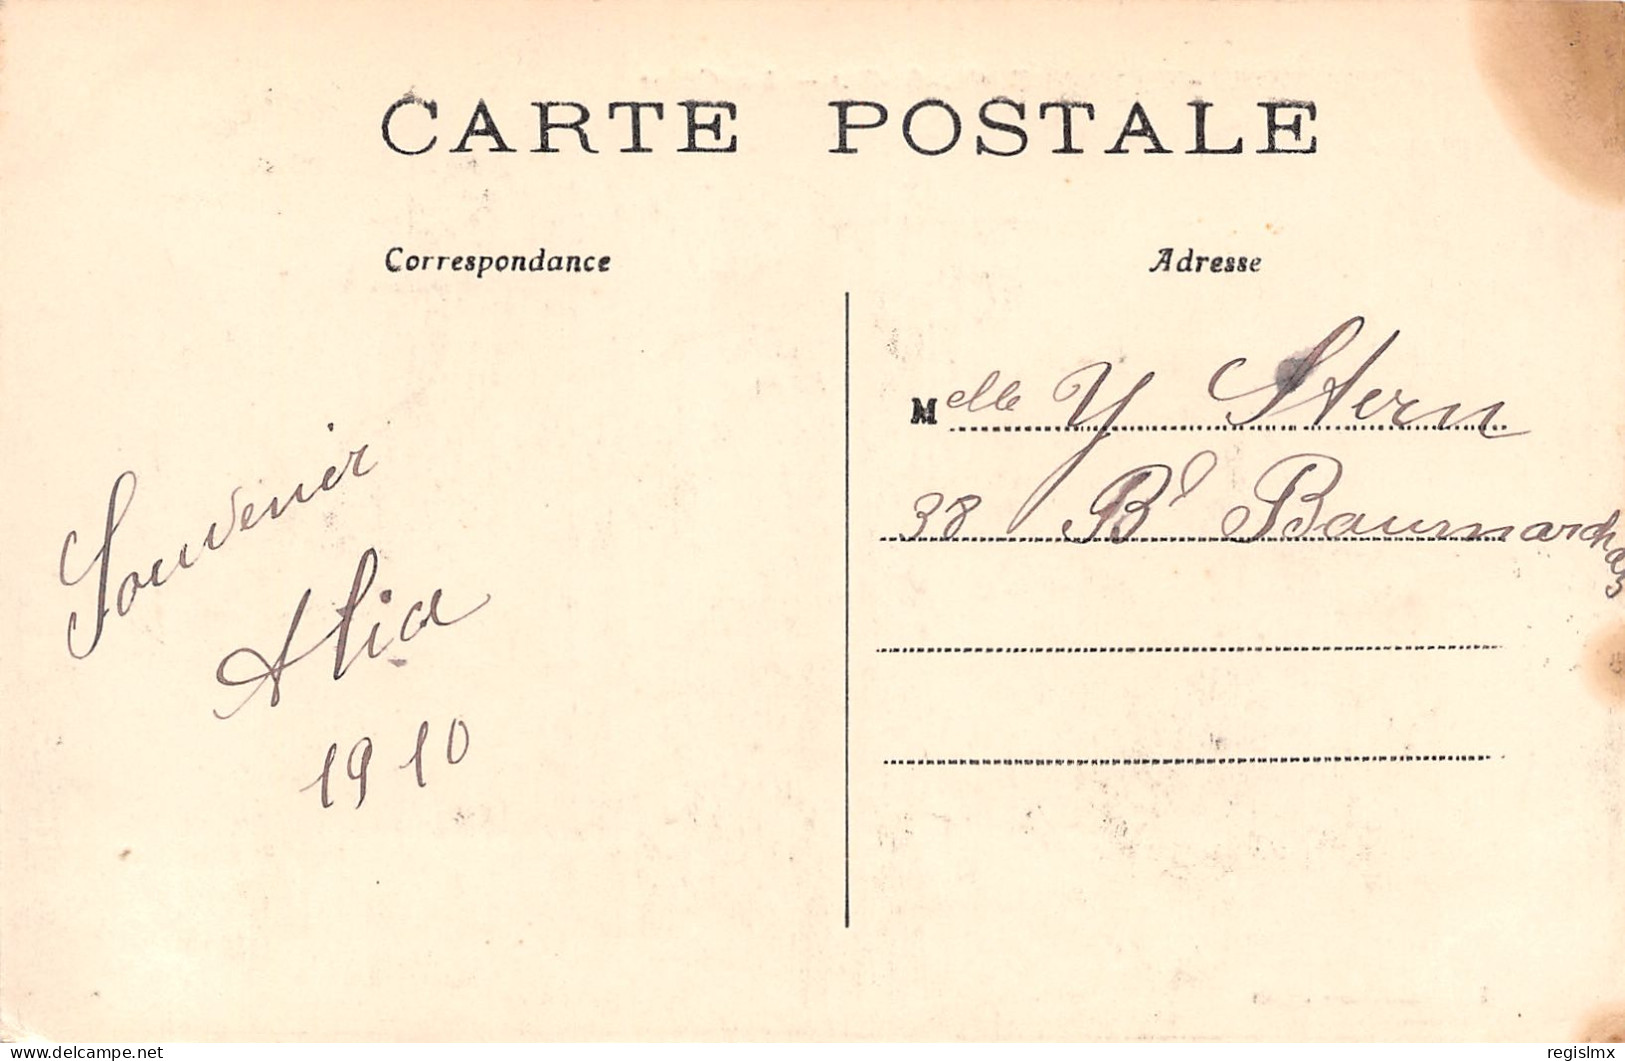 CARTE POSTALE
Correspondance
Souvenir
Alia
1910
Adresse
Melle Y Stern
38 Bd Baumarchais
delcampe.net
regislmx